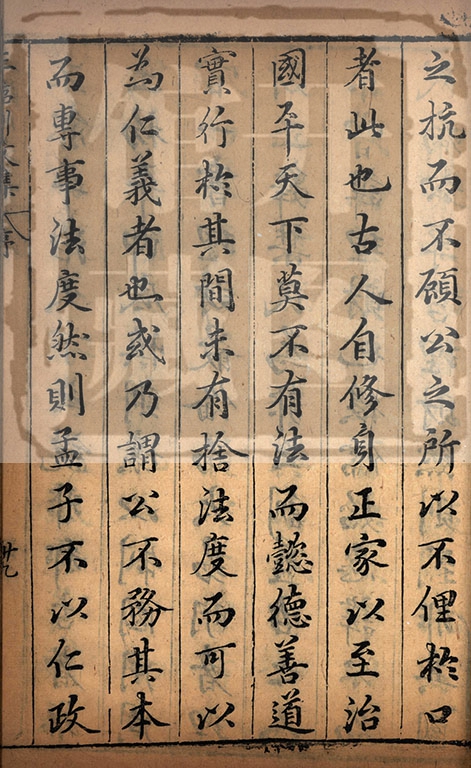 之抗而不顧公之所以不俚於口
者此也古人自修身正家以至治
國平天下莫不有法而懿德善道
實行於其間未有捨法度而可以
為仁義者也或乃謂公不務其本
而專事法度然則孟子不以仁政
文集 序